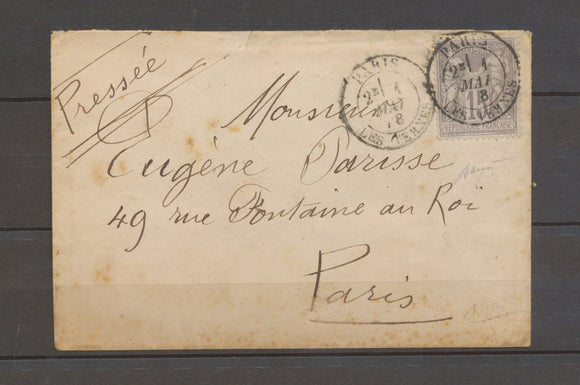 Pressée
Monsieur
Eugène Parisse
49 rue Fontaine au Roi
Paris
PARIS
2E 1
MAI
78
LES TERNES
PARIS
2E 1
MAI
78
LES TERNES
REPUBLIQUE FRANÇAISE